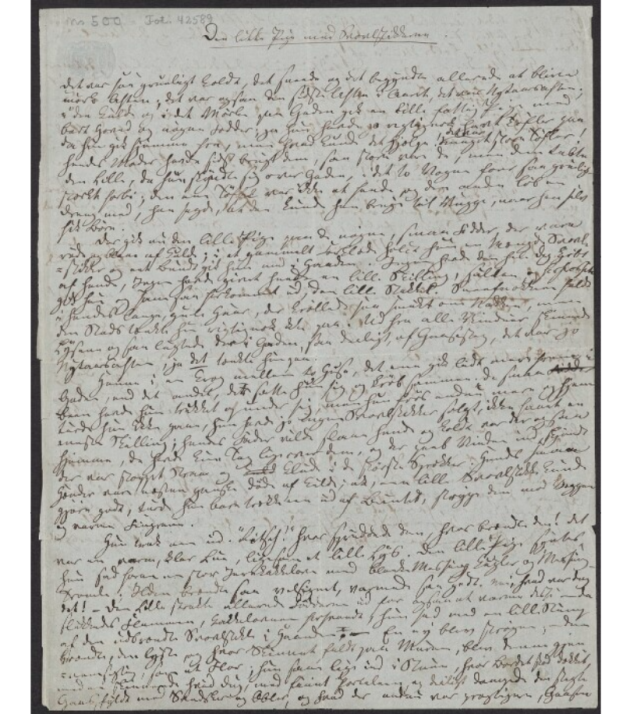 Den lille Pige med Svovlstikkerne.
Det var saa grueligt koldt, det sneede og det begyndte allerede at blive
mørk Aften; det var ogsaa den sidste Aften i Aaret, Nytaarsaften;
i den Kulde og i det Mørke gik paa Gaden en lille, fattig Pige med
bart Hoved og nøgne Fødder; ja hun havde jo rigtignok havt Tøfler paa
da hun gik hjemme fra, men hvad kunde det hjelpe!
hendes Moder havde sidst brugt dem, saa store var de, men dem tabte
den Lille, da hun skyndte sig over Gaden, idet to Vogne foer saa grueligt
stærkt forbi; den ene Tøffel var ikke at finde og den anden løb en
Dreng med, han sagde, at den kunde han bruge til Vugge, naar han fik
selv Børn.
Der gik nu den lille Pige paa de nøgne, smaa Fødder, der vare
røde og blaa af Kulde; i et gammelt Forklæde holdt hun en Mængde Svovl-
stikker og eet Bundt gik hun med i Haanden; Ingen havde den hele Dag kjøbt
af hende, Ingen havde givet hende en lille Skilling; sulten og forfrossen
gik hun og saae saa forkuet ud, den lille Stakkel! Sneefnokkene faldt
i hendes lange, gule Haar, der krøllede saa smukt om Nakken, men
den Stads tænkte hun rigtignok ikke paa. Ud fra alle Vinduer skinnede
Lysene og saa lugtede der i Gaden saa deiligt af Gaasesteg; det var jo
Nytaarsaften, ja det tænkte hun paa.
Henne i en Krog mellem to Huse, det ene gik lidt mere frem i
Gaden, end det andet, der satte hun sig og krøb sammen; de smaa
Been havde hun trukket op under sig, men hun frøs endnu mere og hjem
turde hun ikke gaae, hun havde jo ingen Svovlstikker solgt, ikke faaet en
eneste Skilling, hendes Fader vilde slaae hende og koldt var der ogsaa
hjemme, de havde kun Taget lige over dem, og der peeb Vinden ind, skjøndt
der var stoppet Straa og Klude i de største Sprækker. Hendes smaa
Hænder vare næsten ganske døde af Kulde; ak, een lille Svovlstikke kunde
gjøre godt, turde hun bare trække een ud af Bundtet, stryge den mod Væggen
og varme Fingrene.
Hun trak een ud, "Ritsch!" hvor spruddede den, hvor brændte den! det
var en varm, klar Lue, ligesom et lille Lys. Den lille Pige syntes
hun sad foran en stor Jernkakkelovn med blanke Messing Kugler og Messing-
tromle; Ilden brændte saa velsignet, varmede saa godt, nei, hvad var dog
det! – Den Lille strakte allerede Fødderne ud for ogsaa at varme disse, – da
slukkedes Flammen, Kakkelovnen forsvandt, – hun sad med en lille Stump
af den udbrændte Svovlstikke i Haanden. En ny blev strøgen, den
brændte, den lyste og hvor Skinnet faldt paa Muren, blev denne gjen-
nemsigtig, som et Flor; hun saae lige ind i Stuen, hvor Bordet stod dækket
med en skinnende hvid Dug, med fiint Porcelain, og deiligt dampede den stegte
Gaas, fyldt med Svedsker og Æbler, og hvad der endnu var prægtigere, Gaasen